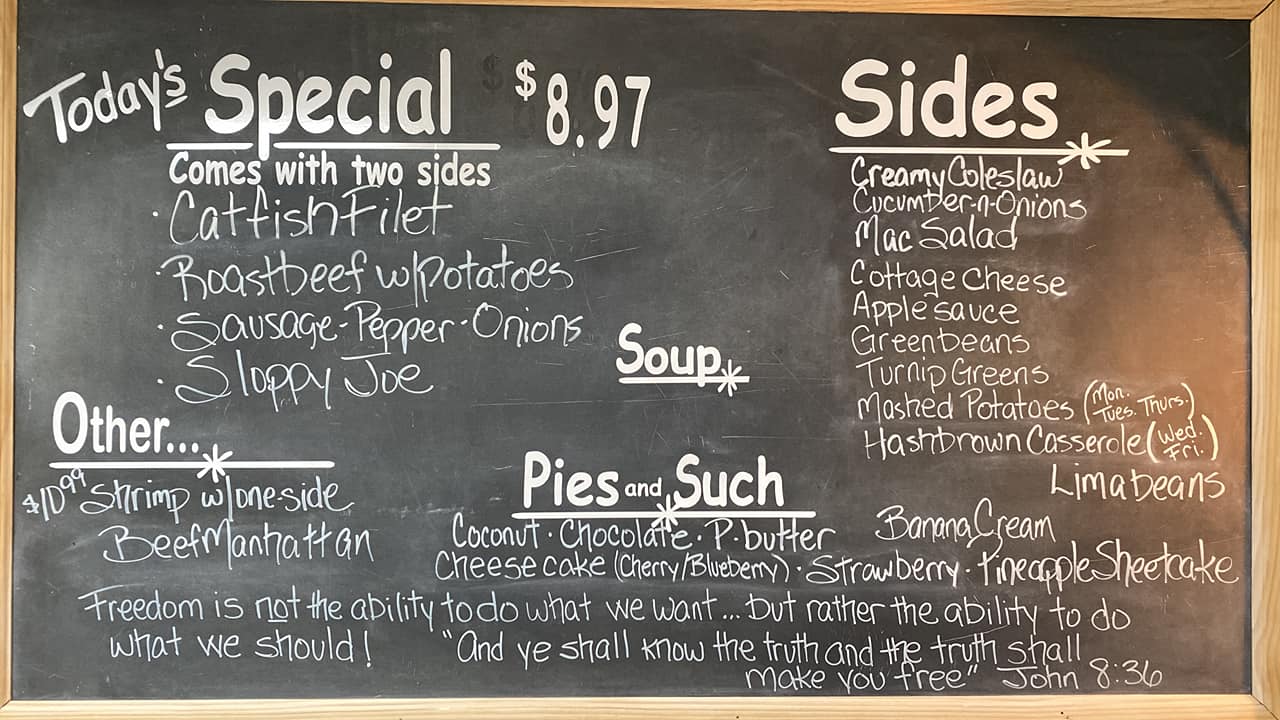 Today's Special $8.97
Comes with two sides
· Catfish Filet
· Roastbeef w/potatoes
· Sausage-Pepper-Onions
· Sloppy Joe
Other...
$10.99 Shrimp w/ one side
Beef Manhattan
Soup
Sides
Creamy Coleslaw
Cucumber-n-Onions
Mac Salad
Cottage Cheese
Apple sauce
Greenbeans
Turnip Greens
Mashed Potatoes (Mon. Tues. Thurs.)
Hashbrown Casserole (Wed. Fri.)
Lima beans
Pies and Such
Coconut · Chocolate · P.butter Banana Cream
Cheesecake (Cherry/Blueberry) · Strawberry · Pineapple Sheetcake
Freedom is not the ability to do what we want... but rather the ability to do
what we should! "And ye shall know the truth and the truth shall
make you free" John 8:36